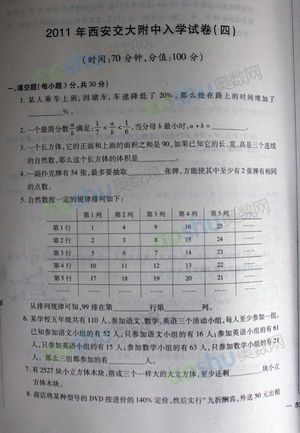 2011年西安交大附中入学试卷(四)
(时间:70分钟,分值:100分)
一、填空题(每小题3分,共30分)
1. 某人乘车上班,因堵车,车速降低了20%,那么他在路上的时间增加了
。
2. 一个最简分数 a/b 满足: 1/7 < a/b < 1/6 ,当分母b最小时,a+b=
3. 一个长方体,它的正面和上面的面积之和是90,如果已知它的长、宽、高是三个连续
的自然数,那么这个长方体的体积是
4. 一副扑克牌有54张,最多要抽取 张牌,方能使其中至少有2张牌有相同
的点数。
5. 自然数按一定的规律排列如下:
第1列 第2列 第3列 第4列 第5列
第1行 1 4 9 16 25
第2行 2 3 8 15 24
第3行 5 6 7 14 23
第4行 10 11 12 13 22
第5行 17 18 19 20 21
从排列规律可知,99排在第 行第 列。
6. 某学校五年级共有110人,参加语文、数学、英语三个活动小组,每人至少参加一组,
已知参加语文小组的有52人,只参加语文小组的有16人;参加英语小组的有61
人,只参加英语小组的有15人;参加数学小组的有63人,只参加数学小组的有21
人。那么三组都参加的有 人。
7. 有2527块小立方体木块,搭成三个一样大的大立方体,至少还剩 块小立
方体木块。
8. 商店将某种型号的DVD按进价的140%定价,然后实行“九折酬宾,外送50元出租